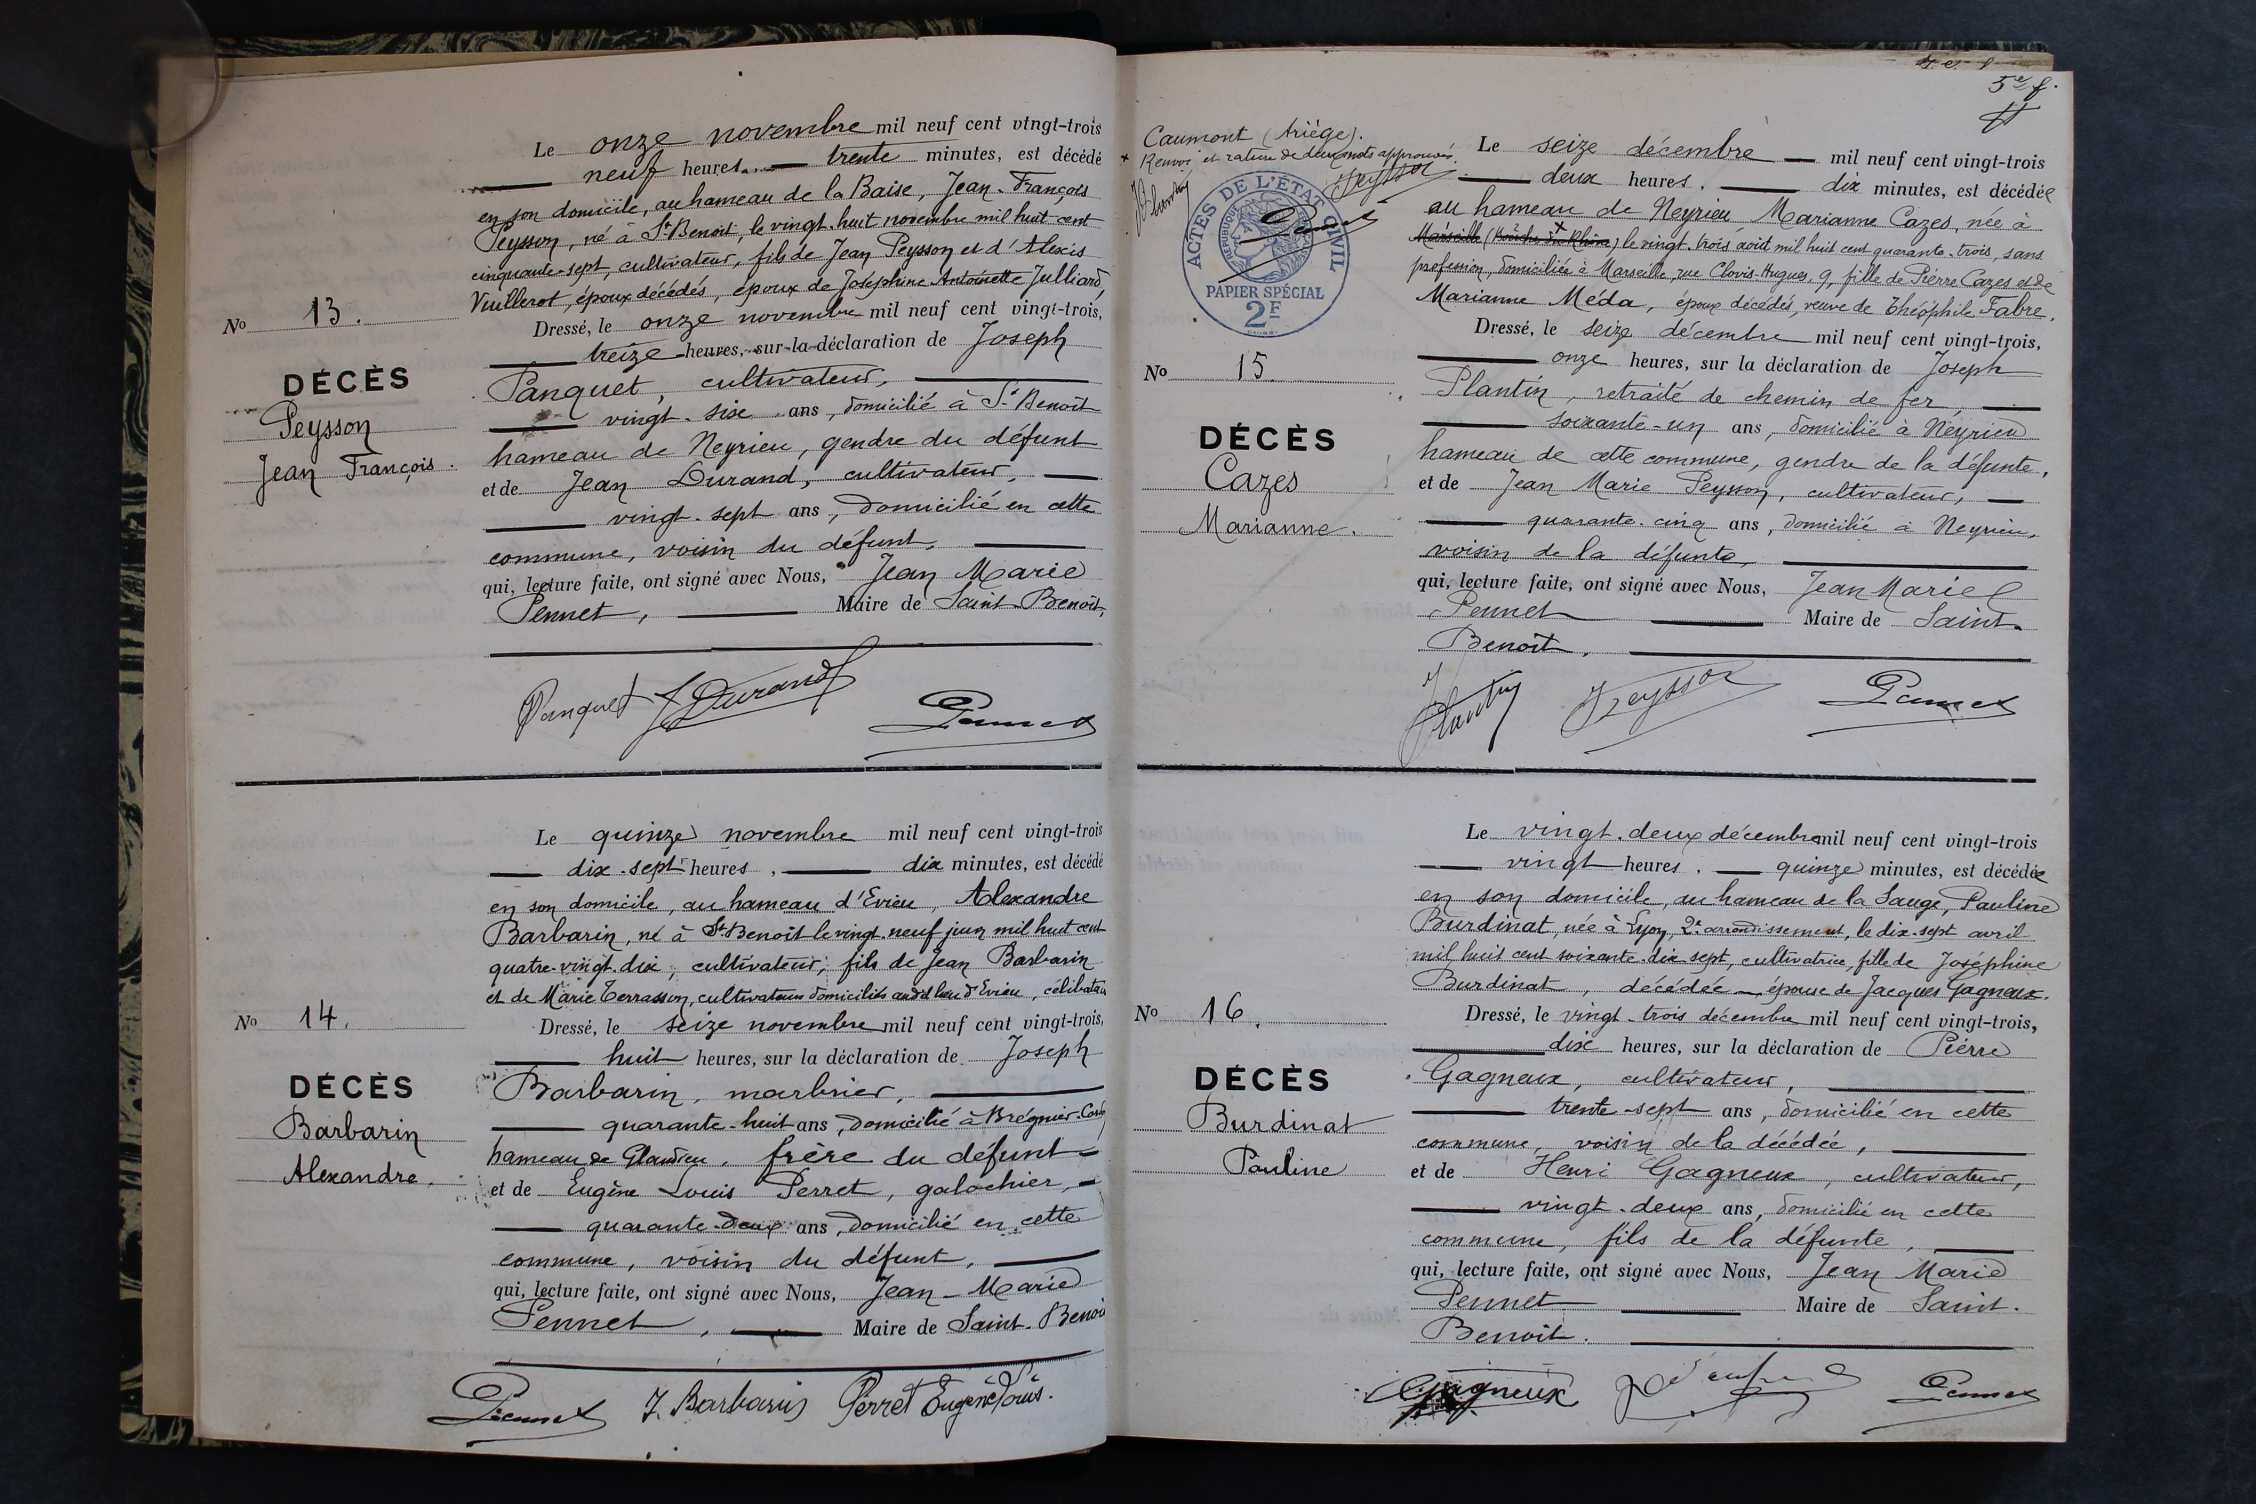 Le onze novembre mil neuf cent vingt-trois
neuf heures trente minutes, est décédé
en son domicile, au hameau de la Baise, Jean-François
Peysson, né à St Benoit, le vingt-huit novembre mil huit cent
cinquante-sept, cultivateur, fils de Jean Peysson et d'Alexis
Vuillerot, époux décédés, époux de Joséphine Antoinette Julliard,
No 13.
Dressé, le onze novembre mil neuf cent vingt-trois,
treize heures, sur la déclaration de Joseph
DÉCÈS
Peysson
Jean François.
Panquet, cultivateur,
vingt-six ans, domicilié à St Benoit
hameau de Neyrieu, gendre du défunt
et de Jean Durand, cultivateur,
vingt-sept ans, domicilié en cette
commune, voisin du défunt,
qui, lecture faite, ont signé avec Nous, Jean Marie
Pennet, Maire de Saint-Benoit,
Panquet J Durand
Pennet
Le quinze novembre mil neuf cent vingt-trois
dix-sept heures, dix minutes, est décédé
en son domicile, au hameau d'Evieu, Alexandre
Barbarin, né à St Benoit le vingt-neuf juin mil huit cent
quatre-vingt-dix, cultivateur, fils de Jean Barbarin
et de Marie Terrasson, cultivateurs domiciliés audit lieu d'Evieu, célibataire
No 14.
Dressé, le seize novembre mil neuf cent vingt-trois,
huit heures, sur la déclaration de Joseph
DÉCÈS
Barbarin
Alexandre.
Barbarin, marbrier,
quarante-huit ans, domicilié à Brégnier-Cordon
hameau de Glandieu, frère du défunt
et de Eugène Louis Perret, galochier,
quarante-deux ans, domicilié en cette
commune, voisin du défunt,
qui, lecture faite, ont signé avec Nous, Jean-Marie
Pennet, Maire de Saint-Benoit
Pennet J. Barbarin Perret Eugène Louis.
5e f.
Caumont (Ariège).
x Renvoi et rature de deux mots approuvés.
J Plantin JPeysson
Pennet
ACTES DE L'ÉTAT CIVIL
RÉPUBLIQUE FRANÇAISE
PAPIER SPÉCIAL
2F
Le seize décembre mil neuf cent vingt-trois
deux heures, dix minutes, est décédée
au hameau de Neyrieu Marianne Cazes, née à
Marseille (Bouches du Rhône) x le vingt-trois août mil huit cent quarante-trois, sans
profession, domiciliée à Marseille, rue Clovis-Hugues, 9, fille de Pierre Cazes et de
Marianne Méda, époux décédés, veuve de Théophile Fabre.
Dressé, le seize décembre mil neuf cent vingt-trois,
No 15.
onze heures, sur la déclaration de Joseph
DÉCÈS
Cazes
Marianne.
Plantin, retraité de chemin de fer,
soixante-un ans, domicilié à Neyrieu
hameau de cette commune, gendre de la défunte,
et de Jean Marie Peysson, cultivateur,
quarante-cinq ans, domicilié à Neyrieu,
voisin de la défunte,
qui, lecture faite, ont signé avec Nous, Jean Marie
Pennet Maire de Saint-
Benoit.
J Plantin JPeysson Pennet
Le vingt-deux décembre mil neuf cent vingt-trois
vingt heures. quinze minutes, est décédée
en son domicile, au hameau de la Sauge, Pauline
Burdinat, née à Lyon, 2e arrondissement, le dix-sept avril
mil huit cent soixante-dix-sept, cultivatrice, fille de Joséphine
Burdinat, décédée, épouse de Jacques Gagneux.
No 16.
Dressé, le vingt-trois décembre mil neuf cent vingt-trois,
dix heures, sur la déclaration de Pierre
DÉCÈS
Burdinat
Pauline
Gagneux, cultivateur,
trente-sept ans, domicilié en cette
commune, voisin de la décédée,
et de Henri Gagneux, cultivateur,
vingt-deux ans, domicilié en cette
commune, fils de la défunte,
qui, lecture faite, ont signé avec Nous, Jean Marie
Pennet Maire de Saint-
Benoit.
Gagneux
Pennet